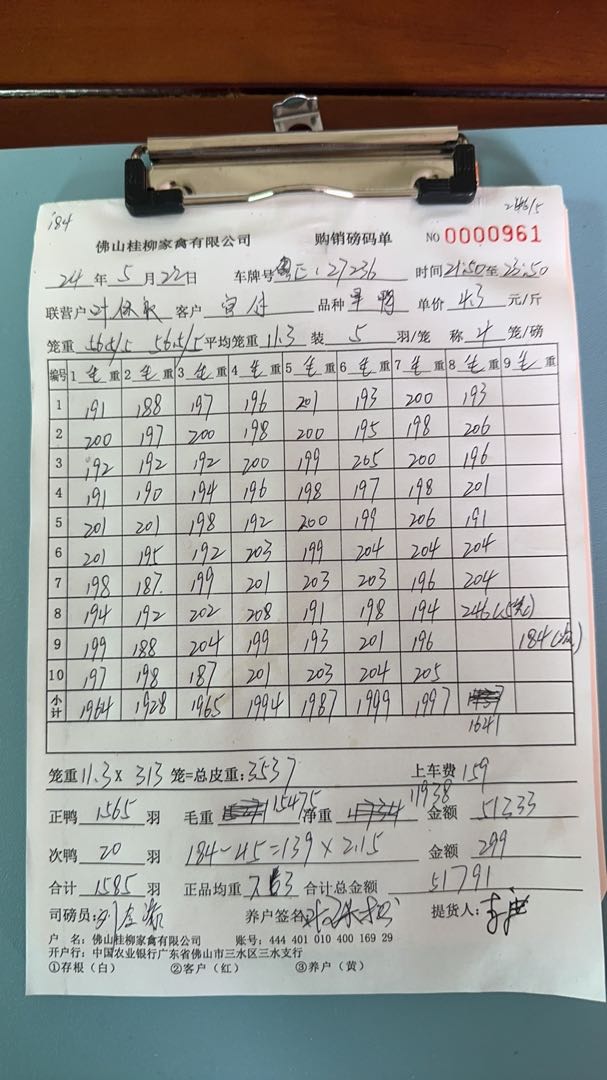 184
佛山桂柳家禽有限公司 购销磅码单 NO 0000961
24 年 5 月 22 日 车牌号 粤E:27236 时间 21:50 至 23:50
联营户 客户 品种 单价 4.3 元/斤
笼重 56.5/5 56.5/5 平均笼重 11.3 装 5 羽/笼 称 4 笼/磅
编号 1 毛 重 2 毛 重 3 毛 重 4 毛 重 5 毛 重 6 毛 重 7 毛 重 8 毛 重 9 毛 重
1 191 188 197 196 201 193 200 193
2 200 197 200 198 200 195 198 206
3 192 192 192 200 199 205 200 196
4 191 190 194 196 198 197 198 201
5 201 201 198 192 200 199 206 191
6 201 195 192 203 199 204 204 204
7 198 187 199 201 203 203 196 204
8 194 192 202 208 191 198 194 246
9 199 188 204 199 193 201 196 184
10 197 198 187 201 203 204 205
小计 1964 1928 1965 1994 1987 1999 1997
1641
笼重 11.3 × 313 笼=总皮重: 3537 上车费 159
正鸭 1565 羽 毛重 15475 净重 11938 金额 51333
次鸭 20 羽 184-45=139×2.15 金额 299
合计 1585 羽 正品均重 7.63 合计总金额 51791
司磅员: 养户签名 提货人:
户 名: 佛山桂柳家禽有限公司 账号: 444 401 010 400 169 29
开户行: 中国农业银行广东省佛山市三水区三水支行
①存根(白) ②客户(红) ③养户(黄)